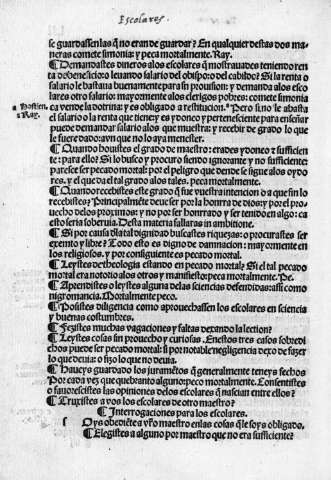 Escolares
se guardassen las q̃ no eran de guardar? En qualquier destas dos ma
neras comete simonia: y peca mortalmente. Ray.
¶ Demandastes dineros alos escolares q̃ mostrauades teniendo ren
ta o beneficio: o leuando salario del obispo: o del cabildo? Si la renta o
salario le bastaua buenamente para su prouision: y demanda alos esco
lares otro salario: mayormente alos clerigos pobres: comete simonia
ca vende la dotrina: y es obligado a restitucion. Pero si no le abasta
a Hostien.
s Ray.
el salario o la renta que tiene: y es ydoneo y perteneciente para enseñar
puede demandar salario alos que muestra: y recebir de grado lo que
le fuere dado: avn que no lo aya menester.
¶ Quando houistes el grado de maestro: erades ydoneo z sufficien
te: para ello? Si lo busco y procuro siendo ignorante y no sufficiente:
paresce ser pecado mortal: por el peligro que dende se sigue alos oydo
res. y el que da el tal grado alos tales, peca mortalmente.
¶ Quando recebistes este grado q̃ fue vuestra intencion o a que fin lo
recebistes? Principalmẽte deue ser por la honrra de dios: y por el pro
uecho delos proximos: y no por ser honrrado y ser tenido en algo: ca
esto seria soberuia. Desta materia fallaras in ambitione.
¶ Si por causa dla tal dignidad buscastes riquezas: o procurastes ser
exemto y libre? Todo esto es digno de damnacion: mayormente en
los religiosos. y por consiguiente es pecado mortal.
¶ Leystes de theologia estando en pecado mortal? Si el tal pecado
mortal era notorio alos otros y manifiesto: peca mortalmente. Pe.
¶ Aprendistes o leystes alguna delas sciencias defendidas: assi como
nigromancia. Mortalmente peco.
¶ Posistes diligencia como aprouechassen los escolares en sciencia
y buenas costumbres.
¶ Fezistes muchas vagaciones y faltas dexando la lection?
¶ Leystes cosas sin prouecho y curiosas. En estos tres casos sobredi
chos puede ser pecado mortal: si por notable negligencia dexo de fazer
lo que deuia: o fizo lo que no deuia.
¶ Haueys guardado los juramẽtos q̃ generalmente teneys fechos
Por cada vez que quebranto alguno: peco mortalmente. Consentistes
o fauorescistes las opiniones delos escolares q̃ nascian entre ellos?
¶ Truxistes a vos los escolares de otro maestro?
¶ Interrogaciones para los escolares.
Oys obediẽte a vr̃o maestro en las cosas q̃ le soys obligado.
¶ Elegistes a alguno por maestro que no era sufficiente?